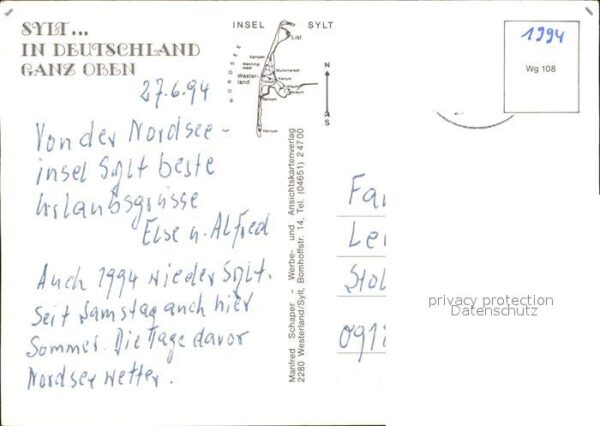 SYLT...
IN DEUTSCHLAND
GANZ OBEN
27.6.94
Von der Nordsee-
insel Sylt beste
Urlaubsgrüsse
Else u. Alfred
Auch 1994 wieder Sylt.
Seit Samstag auch hier
Sommer. Die Tage davor
Nordseewetter.
INSEL SYLT
NORDSEE
List
Kampen
Westerland
Hörnum
N
S
Manfred Schaper - Werbe- und Ansichtskartenverlag
2280 Westerland/Sylt, Bomhoffstr. 14, Tel. (04651) 24700
1994
Wg 108
Fa
Le
Stol
091
privacy protection
Datenschutz